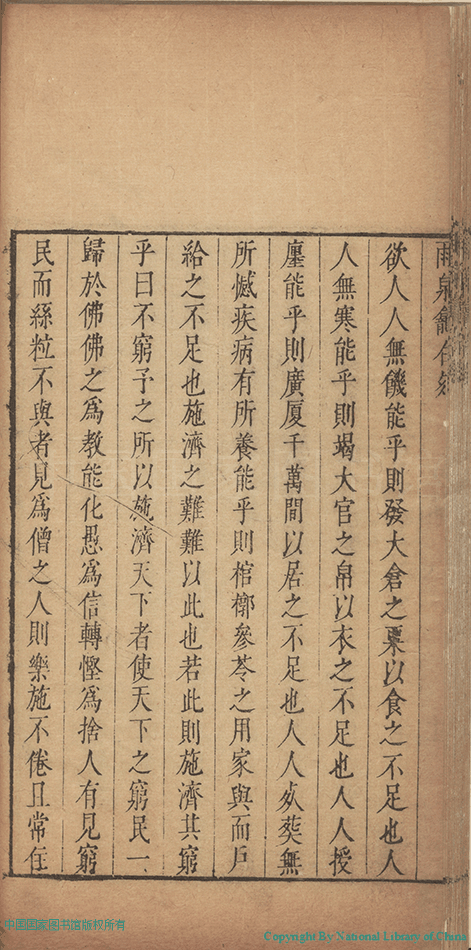 雨泉龕合刻
欲人人無饑能乎則發大倉之粟以食之不足也人
人無寒能乎則竭大官之帛以衣之不足也人人授
廛能乎則廣厦千萬間以居之不足也人人死葬無
所憾疾病有所養能乎則棺槨參苓之用家與而戶
給之不足也施濟之難難以此也若此則施濟其窮
乎曰不窮予之所以施濟天下者使天下之窮民一
歸於佛佛之為教能化愚為信轉慳為捨人有見窮
民而絲粒不與者見為僧之人則樂施不倦且常住
中国国家图书馆版权所有
Copyright By National Library of China